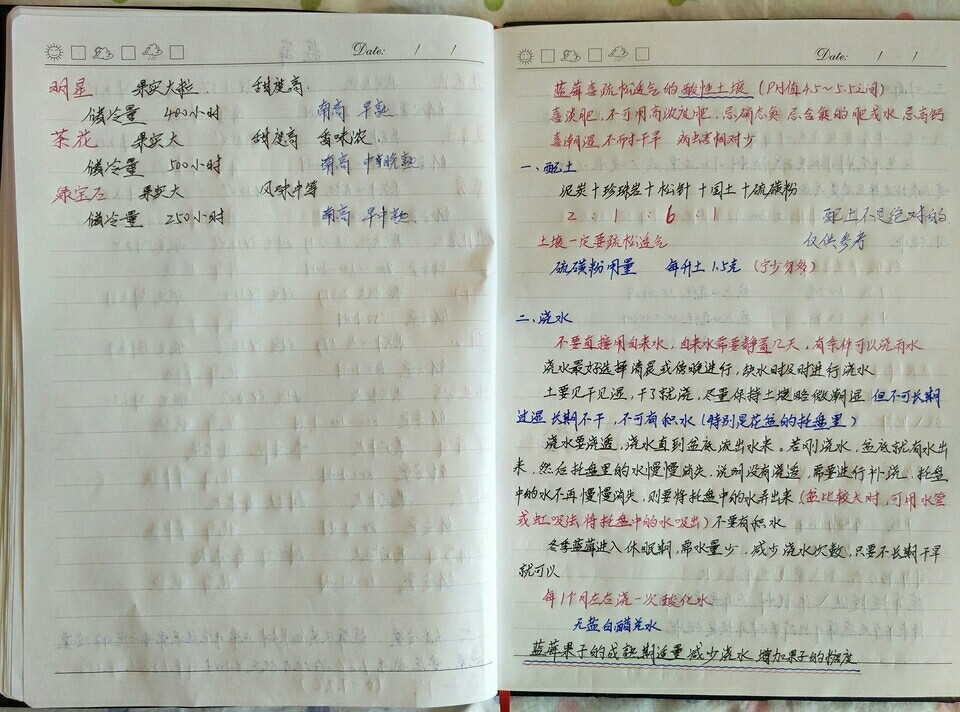 Date: / /
明星 果实大粒 甜度高.
储冷量 400小时 南高 早熟
茶花 果实大 甜度高 香味浓.
储冷量 500小时 南高 中晚熟
绿宝石 果实大 风味中等
储冷量 250小时 南高 早中熟
Date: / /
蓝莓喜疏松透气的酸性土壤 (PH值4.5~5.5之间)
喜淡肥,不可用高浓度肥,忌硝态氮 忌含氯的肥或水 忌高钙
喜潮湿 不耐干旱 病虫害相对少
一.配土
泥炭+珍珠岩+松针+园土+硫磺粉
2 : 1 : 6 : 1 配土不是绝对的
土壤一定要疏松透气 仅供参考
硫磺粉用量 每升土1.5克 (宁少勿多)
二.浇水
不要直接用自来水,自来水需要静置几天,有条件可以浇雨水
浇水最好选择清晨或傍晚进行,缺水时及时进行浇水
土要见干见湿,干了就浇,尽量保持土壤略微潮湿 但不可长期
过湿 长期不干,不可有积水(特别是花盆的托盘里)
浇水要浇透,浇水直到盆底流出水来。若刚浇水,盆底就有水出
来,然后托盘里的水慢慢消失,说明没有浇透,需要进行补浇,托盘
中的水不再慢慢消失,则要将托盘中的水弄出来(盆比较大时,可用水管
或虹吸法将托盘中的水吸出)不要有积水
冬季蓝莓进入休眠期,需水量少,减少浇水次数,只要不长期干旱
就可以
每1个月左右浇一次酸化水
无盐白醋兑水
蓝莓果子的成熟期适量减少浇水 增加果子的糖度